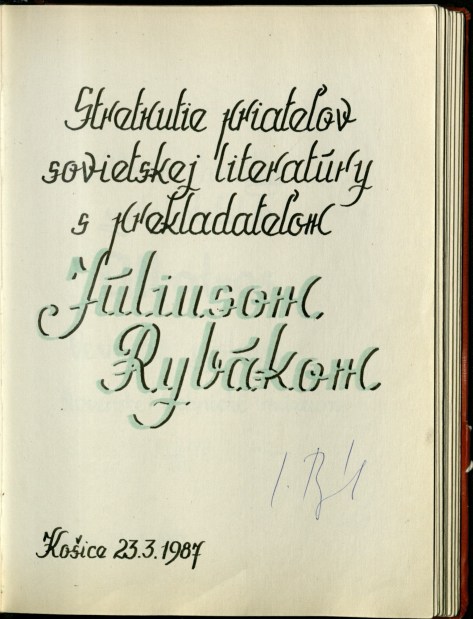 Stretnutie priateľov
sovietskej literatúry
s prekladateľom
Júliusom
Rybákom
Košice 23.3.1987